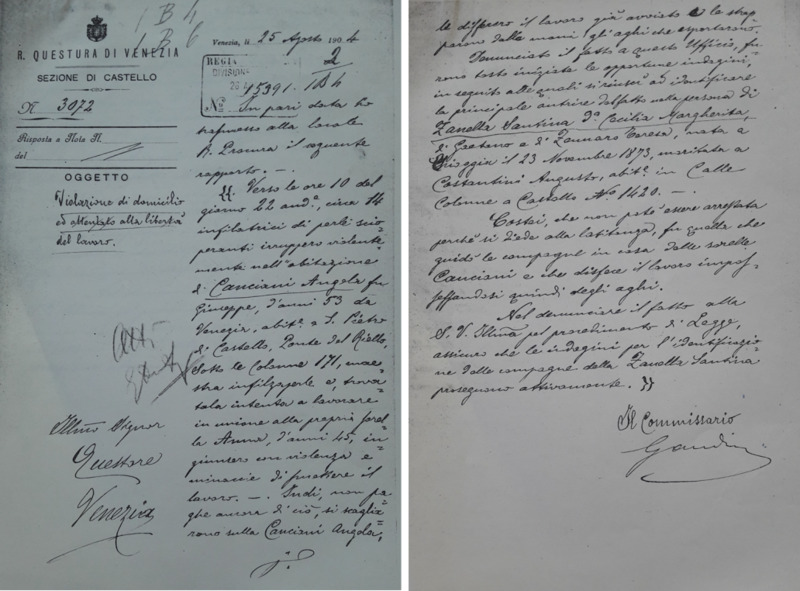 1 B 4
1 B 6
R. QUESTURA DI VENEZIA
SEZIONE DI CASTELLO
N 3072
Risposta a Nota N.
del
OGGETTO
Violazione di domicilio
ed attentato alla libertà
del lavoro.
Atti
Illmo Signor
Questore
Venezia
Venezia, li 25 Agosto 1904
2
REGIA
DIVISION
15391. 1B4
N.o
In pari data ho
trasmesso alla locale
R. Procura il seguente
rapporto. —.
"Verso le ore 10 del
giorno 22 and.e, circa 14
infilatrici di perle scio=
peranti irruppero violente=
mente nell'abitazione
di Canciani Angela fu
Giuseppe, d'anni 53 da
Venezia, abit.e a S. Pietro
di Castello, Ponte del Riello,
Sotto le Colonne 171, mae=
stra infilzaperle e, trova=
tala intenta a lavorare
in unione alla propria sorel=
la Anna, d'anni 45, in=
giunsero con violenza e
minaccie di smettere il
lavoro. —. Indi, non pa=
ghe ancora di ciò, si scaglia=
rono sulla Canciani Angela,
le disfecero il lavoro già avviato e le strap=
parono dalle mani gli aghi che esportarono.
Denunciato il fatto a questo Ufficio, fu=
rono tosto iniziate le opportune indagini,
in seguito alle quali si riuscì ad identificare
la principale autrice del fatto nella persona di
Zanella Santina d.a Cecilia Margherita,
di Gaetano e di Zennaro Teresa, nata a
Chioggia il 23 Novembre 1873, maritata a
Costantini Augusto, abit.e in Calle
Colonne a Castello N.o 1420. —.
Costei, che non potè essere arrestata
perchè si diede alla latitanza, fu quella che
guidò le compagne in casa delle sorelle
Canciani e che disfece il lavoro impos=
sessandosi quindi degli aghi.
Nel denunciare il fatto alla
S. V. Illma pel procedimento di Legge,
assicuro che le indagini per l'identificazio=
ne delle compagne della Zanella Santina
proseguono attivamente. "
Il Commissario